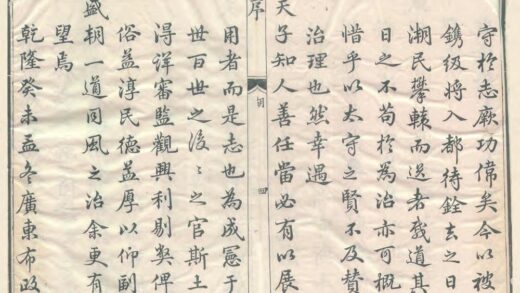 守於志厥功偉矣今以被
鐫级將入都待銓去之日
潮民攀轅而送者載道其
日之不苟於為治亦可概
惜乎以太守之賢不及贊
治理也然幸遇
天子知人善任當必有以展
序
胡
四
用者而是志也為成憲于
世百世之後〻之官斯土
得詳審監觀興利剔獘俾
俗益淳民德益厚以仰副
盛朝一道同風之治余更有
望焉
乾隆癸未孟冬廣東布政